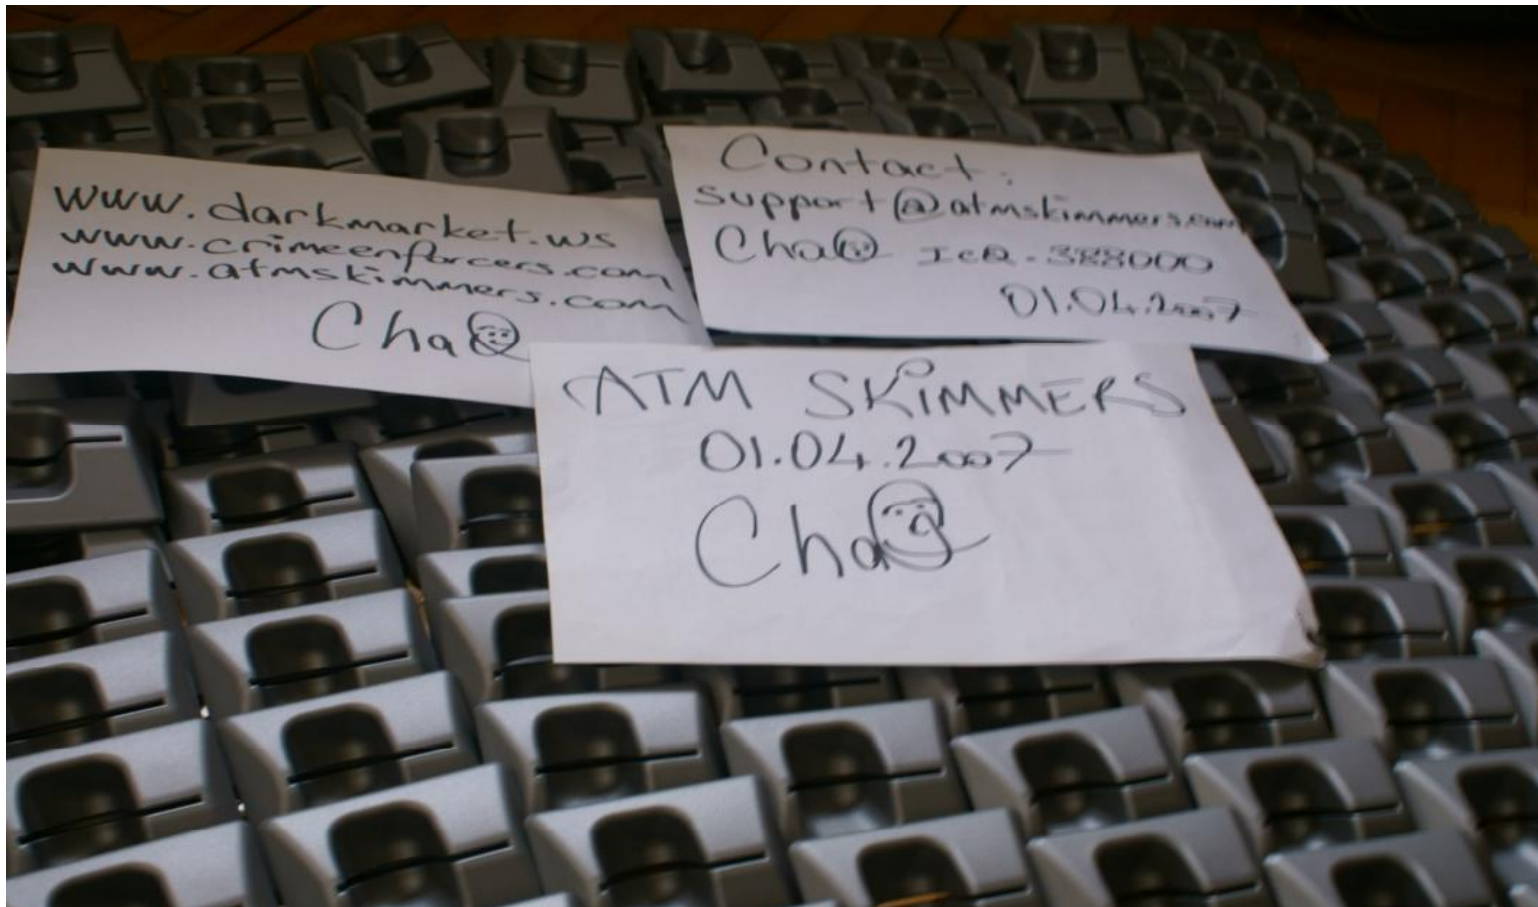 www.darkmarket.ws
www.crimeenforcers.com
www.atmskimmers.com
Cha@
Contact:
support@atmskimmers.com
Cha@ IcQ-388000
01.04.2007
ATM SKiMMERS
01.04.2007
Cha@